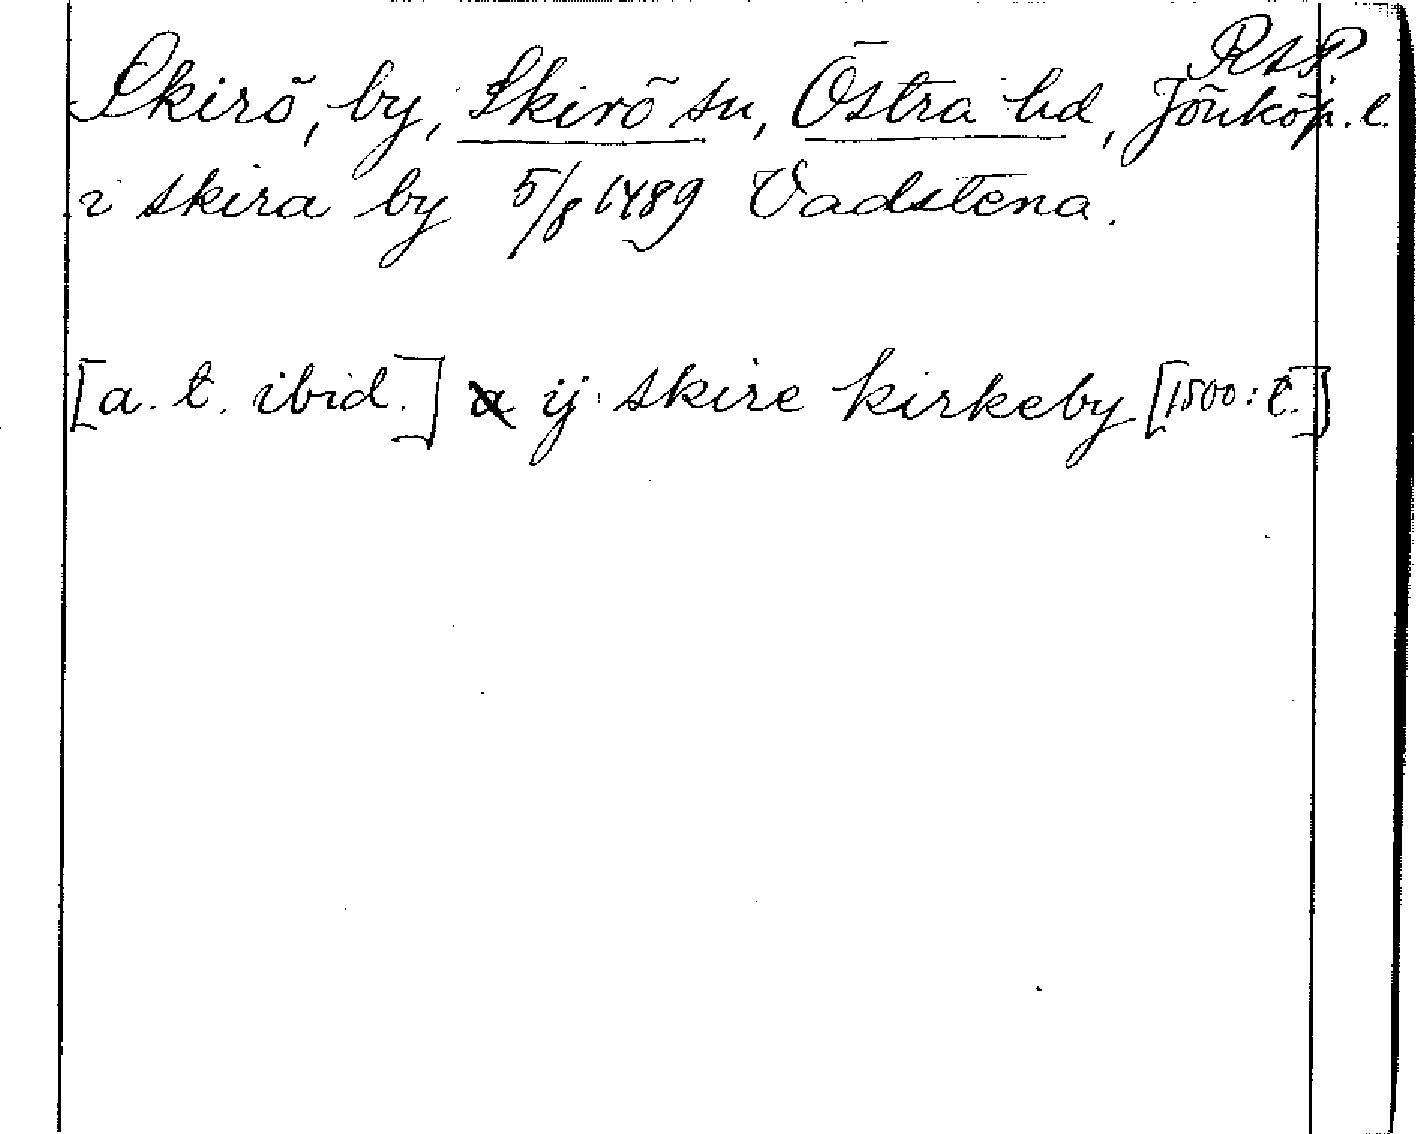 RAP.
Skirö, by, Skirö sn, Östra hd, Jönköp. l.
i skira by 5/8 1489 Vadstena.
[a. t. ibid.] ij skire kirkeby [1500: t.]